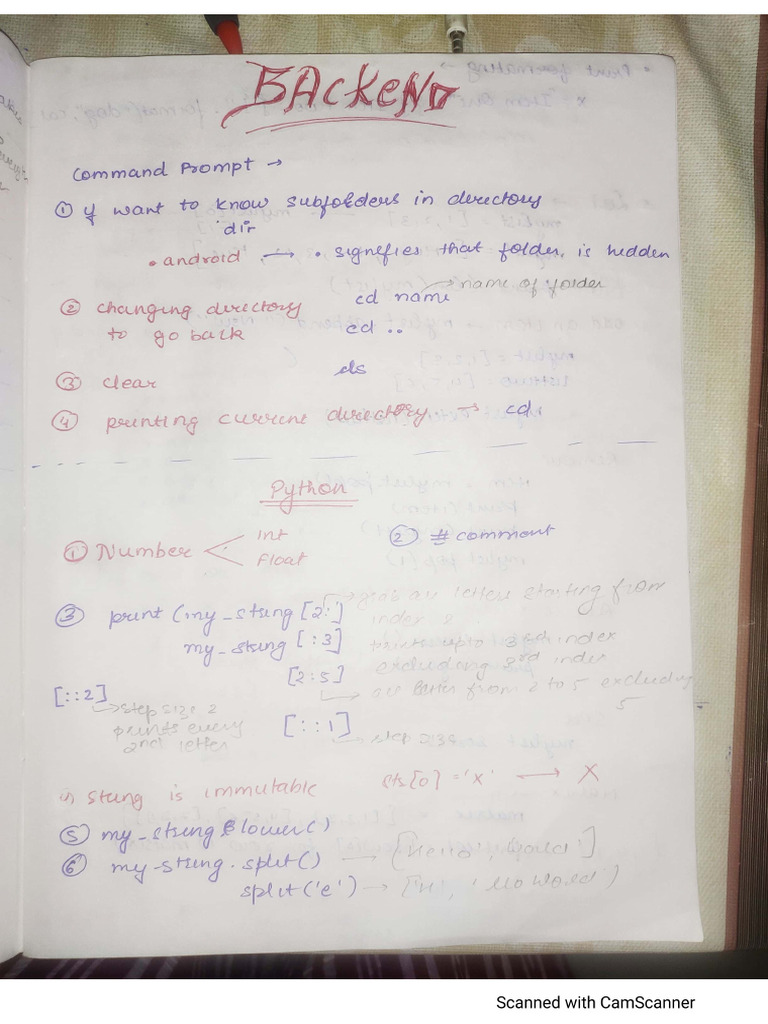 BACKEND
Command Prompt →
① if want to know subfolders in directory
'dir'
.android → . signefies that folder is hidden
② changing directory cd name → name of folder
to go back cd ..
③ clear cls
④ printing current directory → cd
Python
① Number < Int
Float
② # comment
③ print (my_string [2:] → grab all letters starting from
index 2
my_string [:3] prints upto 3rd index
excluding 3rd index
[2:5]
→ all letter from 2 to 5 excluding
5
[::2]
→ step size 2
prints every
2nd letter
[::1]
→ step size
String is immutable sts[0] = 'x' → X
⑤ my_string.lower()
⑥ my-string.split() → ['Hello', 'World']
split('e') → ['H', 'llo World')
Scanned with CamScanner